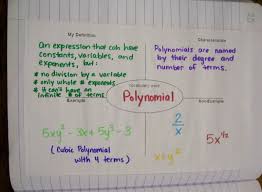 My Definition
An expression that can have
constants, variables, and
exponents, but:
* no division by a variable
* only whole # exponents
* it can't have an
infinite # of terms
Characteristics
Polynomials are named
by their degree and
number of terms.
Vocabulary Word
Polynomial
Example
5xy² - 3x + 5y³ - 3
(Cubic Polynomial
with 4 terms)
NonExample
2/x
5x^1/2